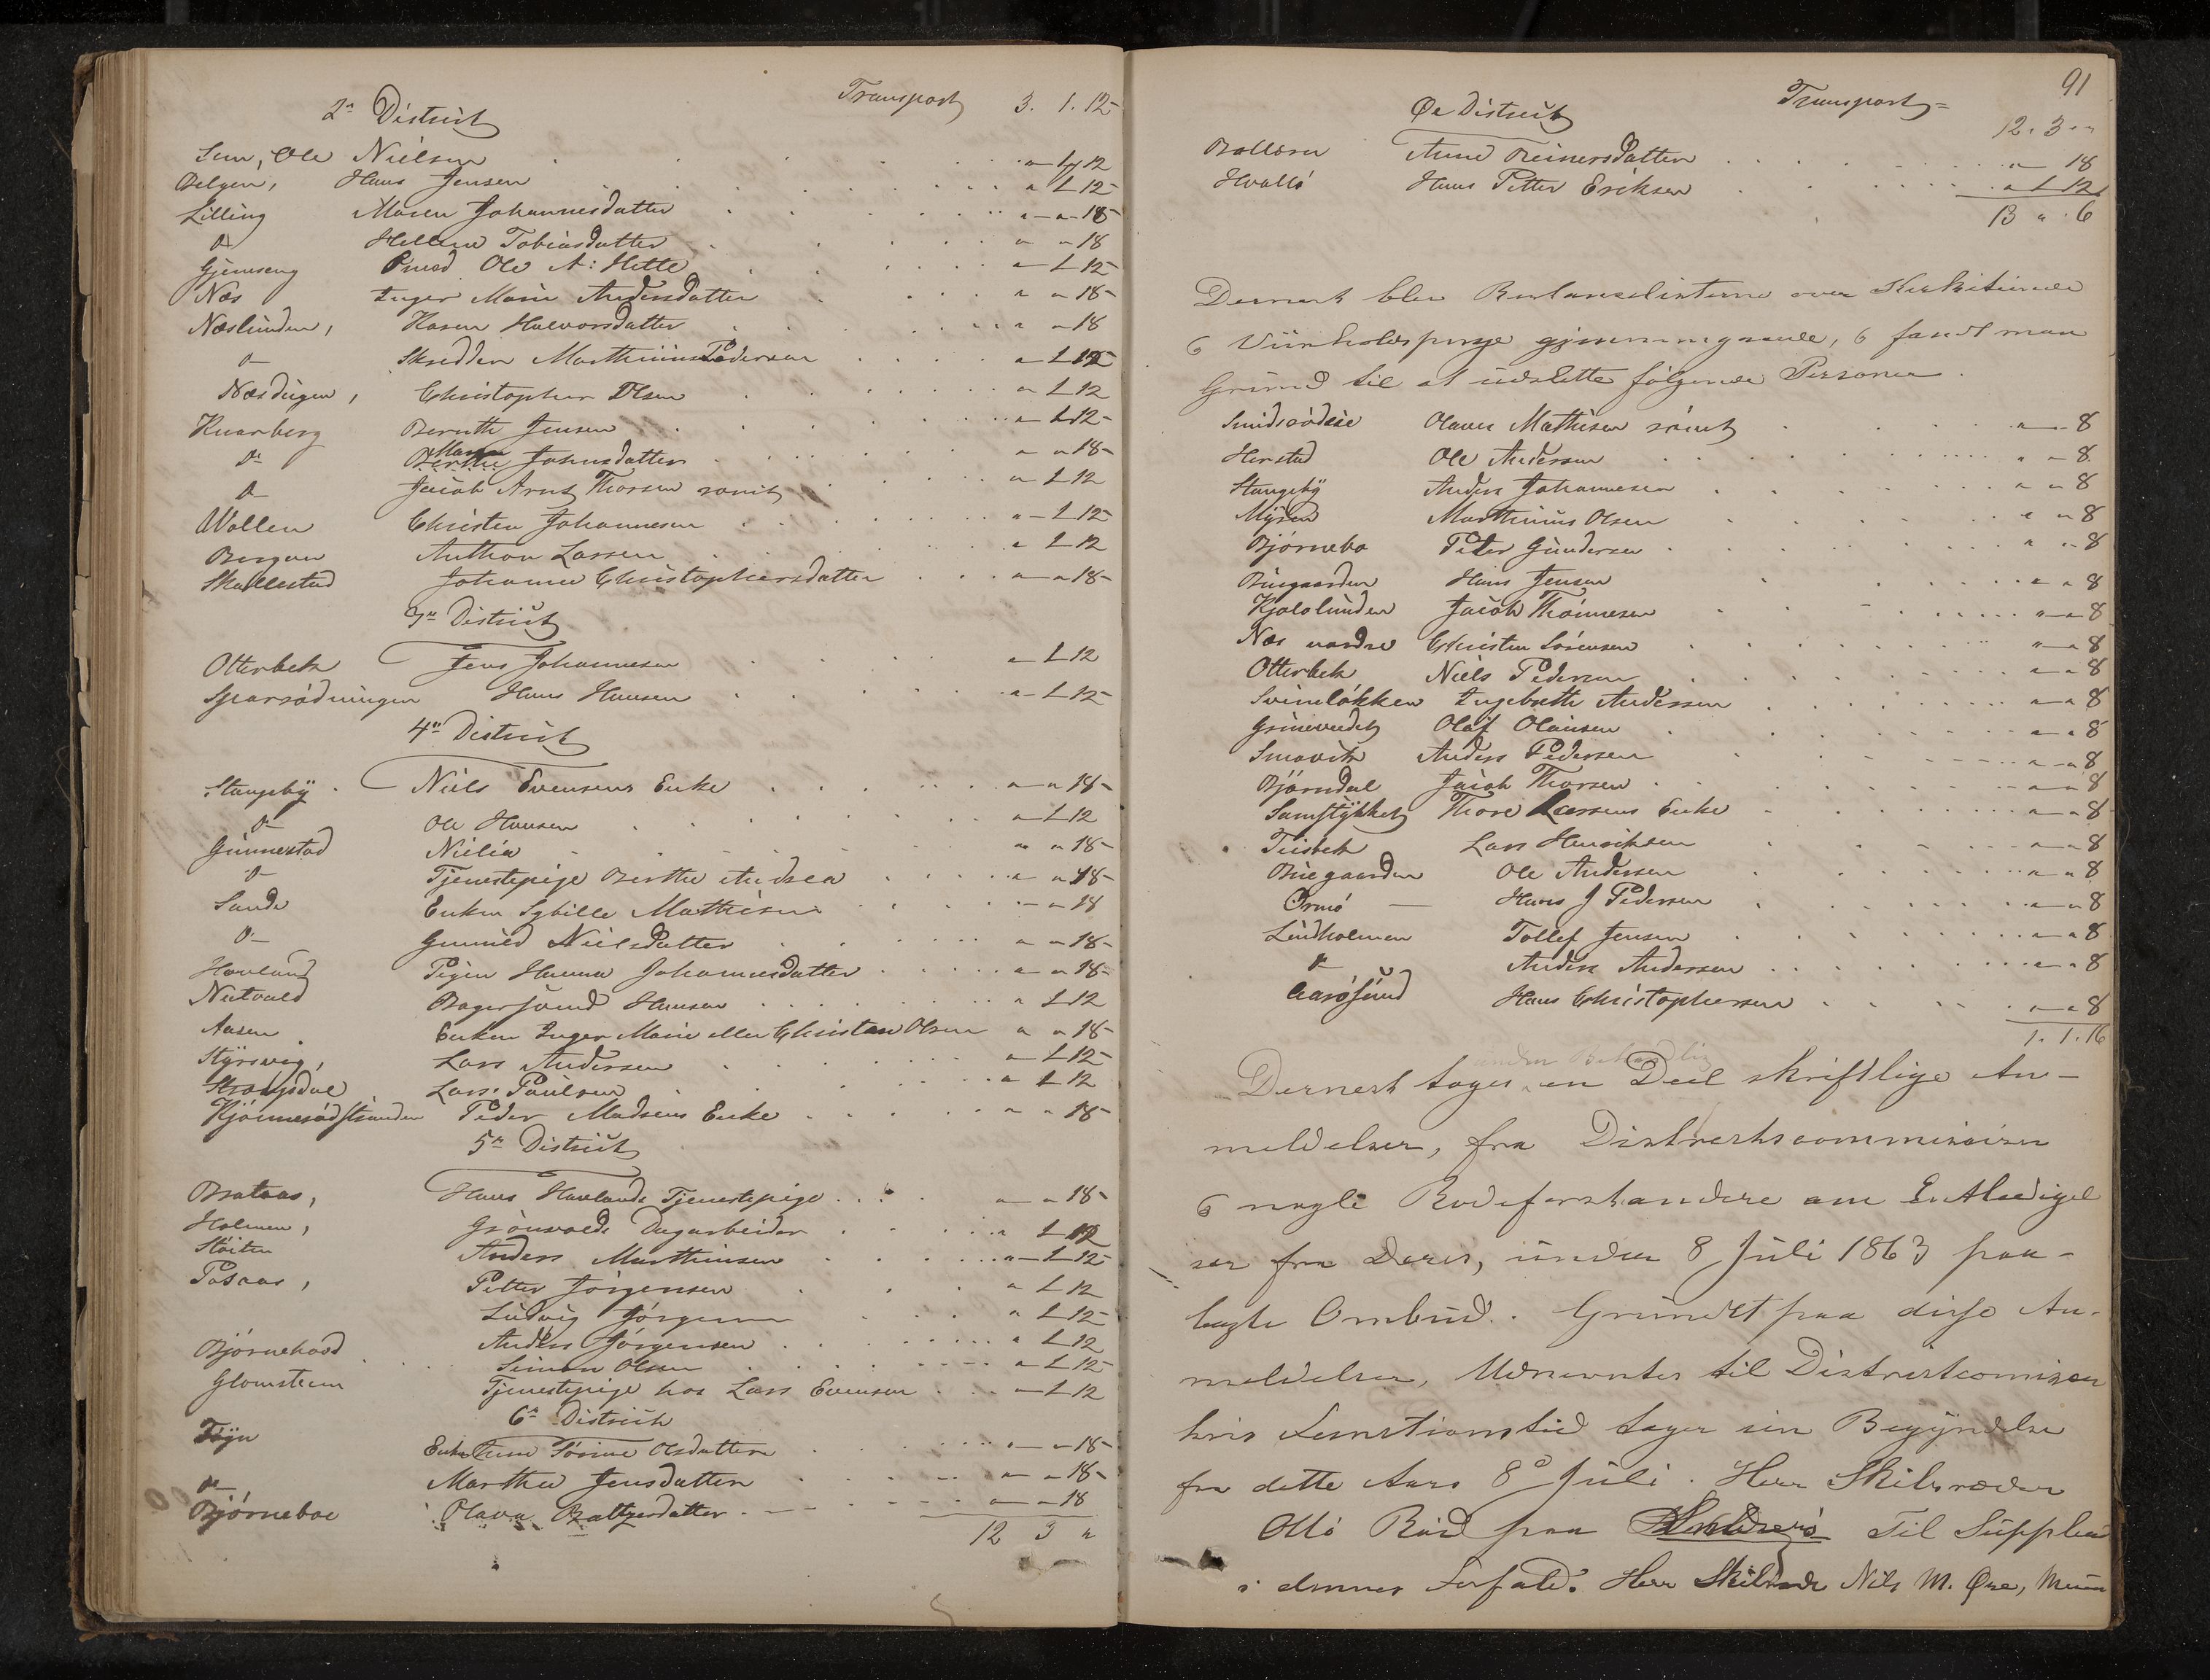 2n District Transport 3. 1. 12
Sem, Ole Nielsen " 1 12
Bølgen, Hans Jensen " 1 12
Lilling Maren Johannesdatter " " 18
d Hellene Tobiasdatter " " 18
Gjemseng Ole A: Hette " 1 12
Næs Inger Marie Andersdatter " " 18
Næslunden, Karen Halvorsdatter " " 18
d Skredder Marthinius Pedersen " 1 12
Christopher Olsen " 1 12
Knarberg Bernth Jensen " 1 12
do Maren Johnsdatter " " 18
d Jacob Arnt Thorsen " 1 12
Wollen Christen Johannesen " 1 12
Bergan Anthon Larsen " 1 12
Skallestad Johanne Christophersdatter " " 18
3n District
Otterbek Jens Johannesen " 1 12
Hans Hansen " 1 12
4n District
Stangeby Niels Evensens Enke " " 18
d Ole Hansen " 1 12
Gunnestad Nielia " " 18
d Tjenestepige Berthe Andrea " " 18
Sande Enken Sybille Mathisen " " 18
d Gunild Nielsdatter " " 18
Havland Pigen Hanna Johannesdatter " " 18
Bager Hansen " 1 12
Aasen Enken Inger Marie eller Christian Olsen " " 18
Styrsvig, Lars Andersen " 1 12
Strengsdal Lars Paulsen " 1 12
Kjønnerødstranden Peder Madsens Enke " " 18
5n District
Brataas, Hans Havlands Tjenestepige " " 18
Holmen, Grønvolds Dagarbeider " 1 12
Støiten Anders Marthinsen " 1 12
Petter Jørgensen " 1 12
Ludvig Jørgensen " 1 12
Anders Jørgensen " 1 12
Bjørnehood Simon Olsen " 1 12
Glomsteen Tjenestepige hos Lars Evensen " 1 12
6n District
Enke Sørine Olsdatter " " 18
d Marthea Jensdatter " " 18
Bjørneboe Olava Baltzersdatter " " 18
12 3 "
91
Øe District Transport
12. 3 "
Bolleren Anne Reinersdatter " " 18
Hvallø Hans Petter Eriksen " 1 12
13 " 6
Dernæst blev Restanselisterne over
gjennemgaaede, fandt man
Grund til at udslette følgende Personer.
Smidsrødøie Olaves Mathisen " " 8
Herstad Ole Andersen " " 8
Stangeby Anders Johannesen " " 8
Myren Marthinius Olsen " " 8
Bjørnebo Peter Gundersen " " 8
Buegaarden Hans Jensen " " 8
Kjølelunden Jacob Thommesen " " 8
Næs nordre Christen Sørensen " " 8
Otterbek Niels Pedersen " " 8
Svineløkken Ingebreth Andersen " " 8
Grimeveedet Olaf Olausen " " 8
Smørvik Anders Pedersen " " 8
Bjørndal Jacob Thorsen " " 8
Samstykket Thore Larsens Enke " " 8
Teisbek Lars Henriksen " " 8
Buegaarden Ole Andersen " " 8
Ormø Hans J Pedersen " " 8
Lindholmen Tollef Jensen " " 8
d Anders Andersen " " 8
Aarøsund Hans Christophersen " " 8
1. 1. 16
under Behandling
Dernæst toges en Deel skriftlige An-
meldelser, fra Districtscommissairer
nogle Rodeforstandere om Entledigel
ser fra Deres, under 8 Juli 1863 paa-
lagte Ombud. Grundet paa disse An-
meldelser, Udnævntes til Districtcomisær
hvis Functionstid tager sin Begyndelse
fra dette Aars 8de Juli. Herr Skibsreder
Otto Røed paa Til Suppleant
i dennes Forfald. Herr Skibsreder Nils M. Øre,